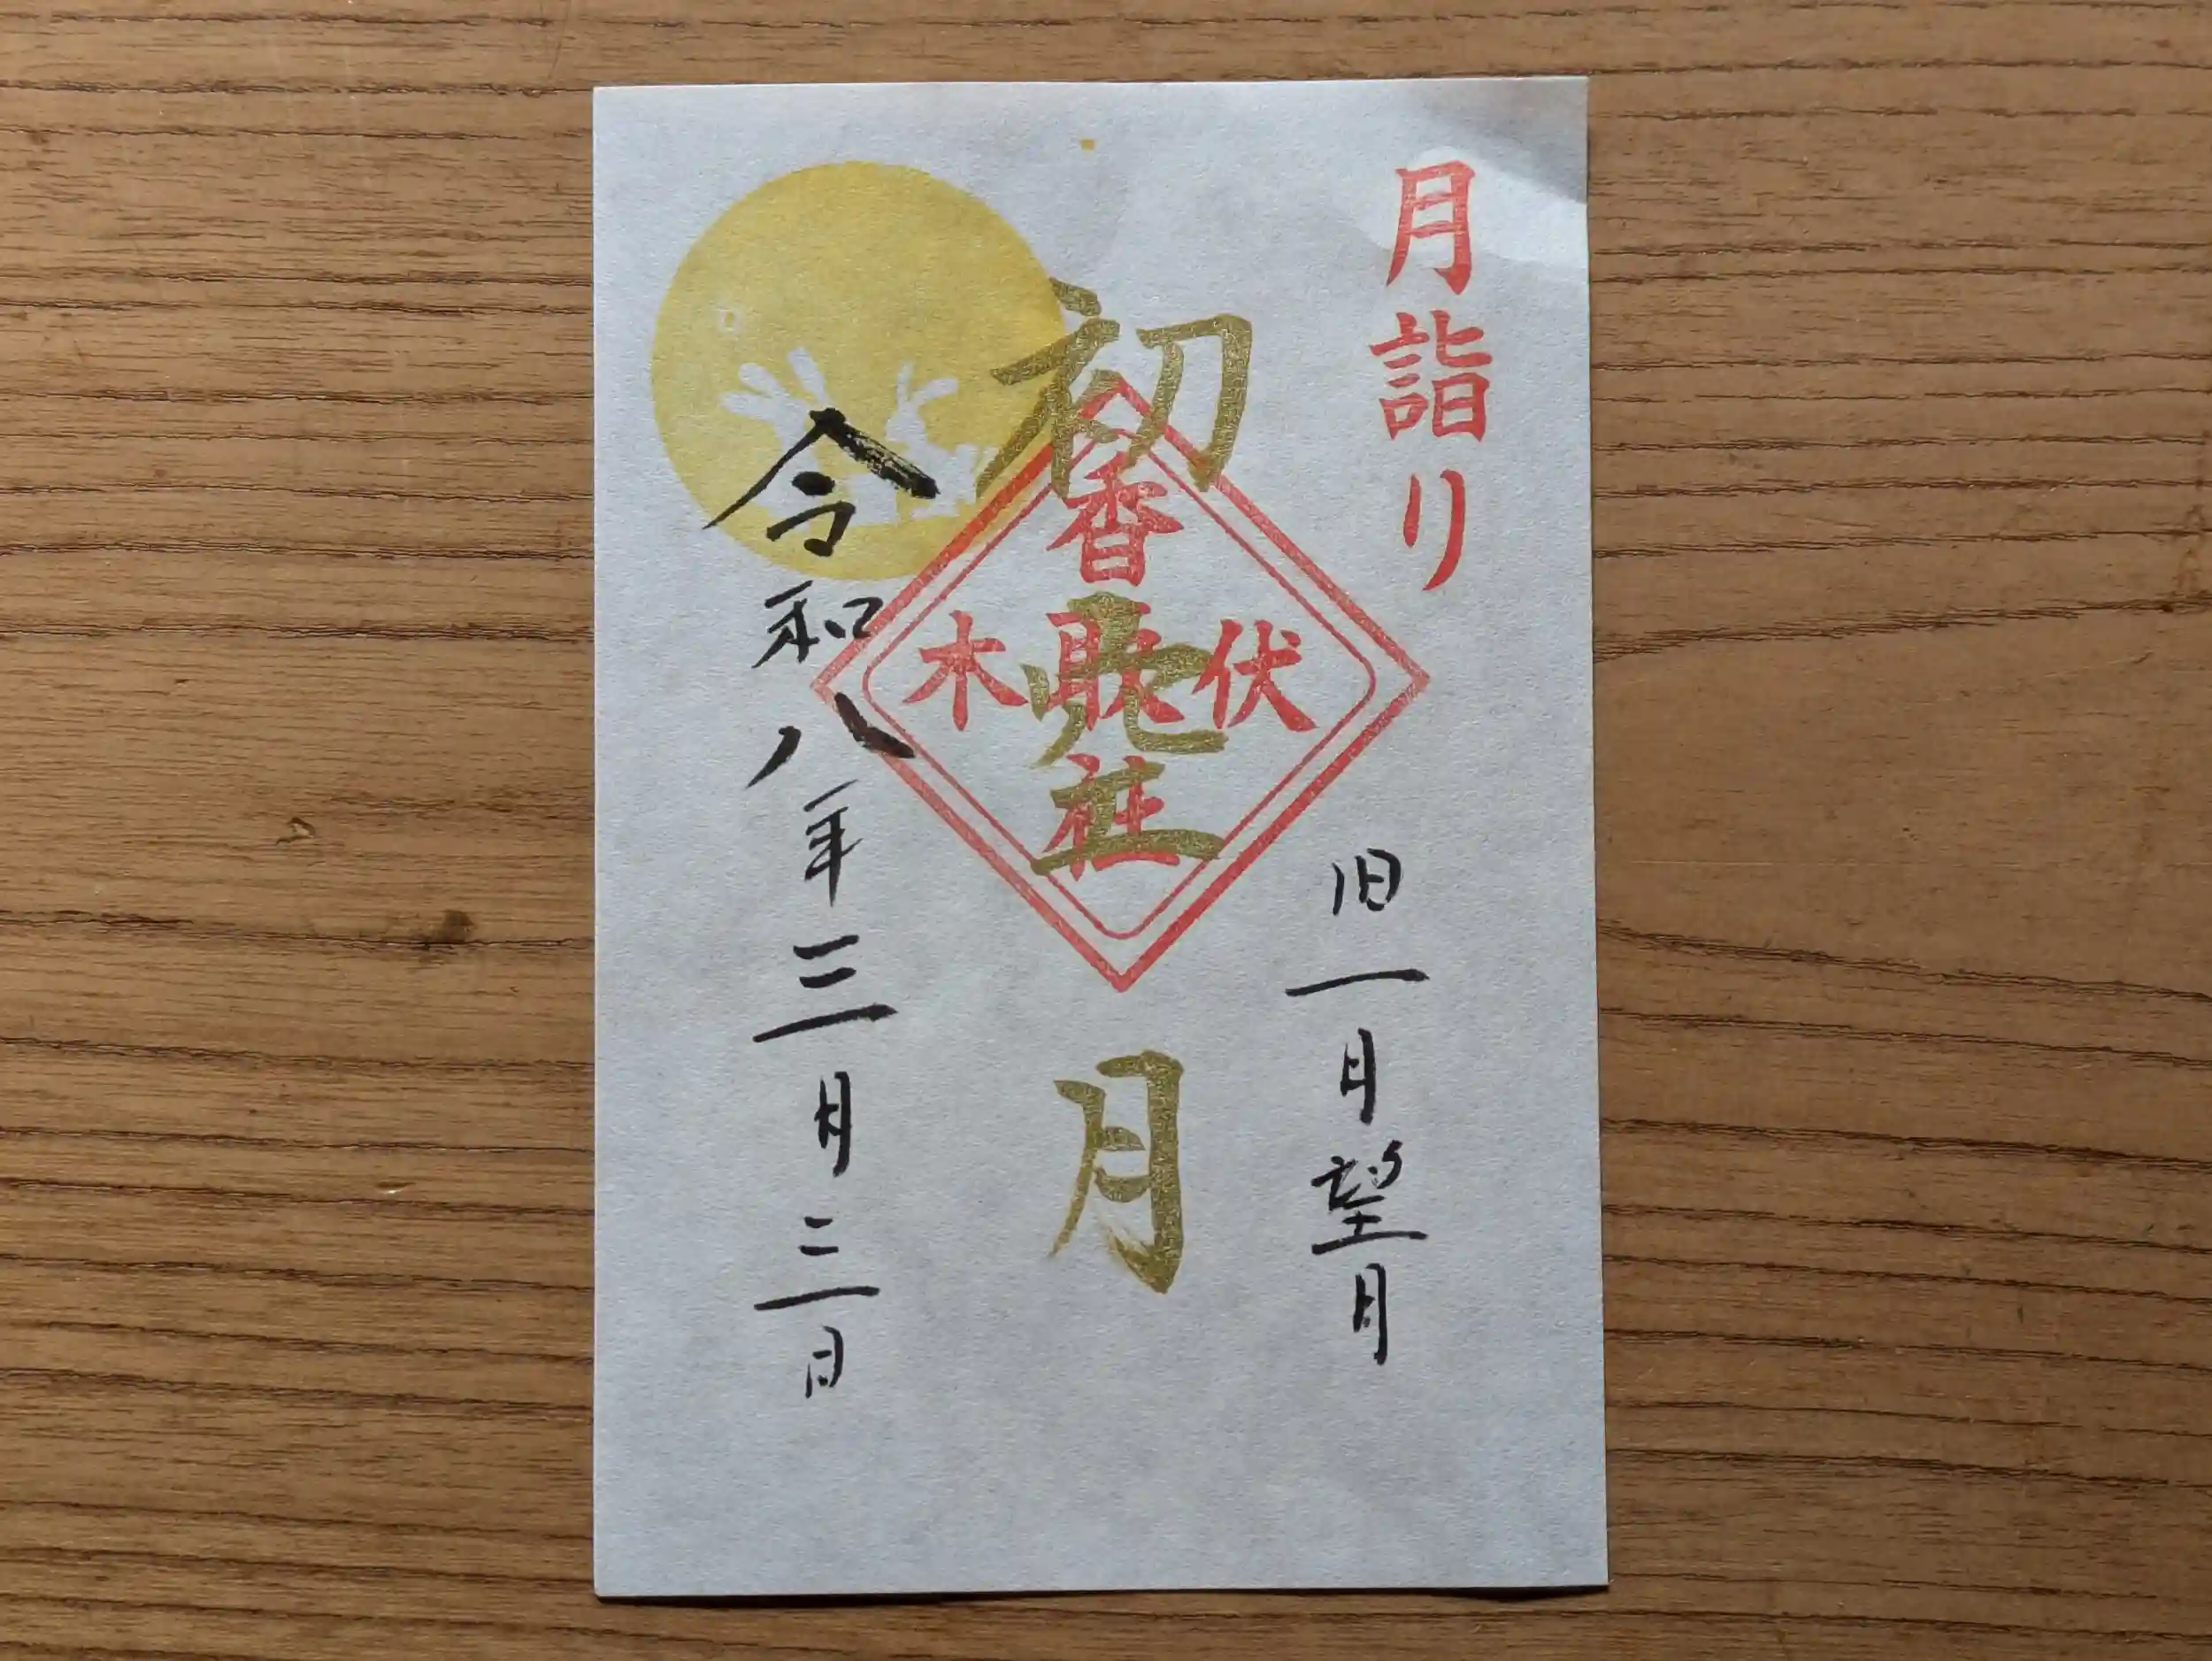 月詣り
旧一月望月
初空月
香取社
伏木
令和八年三月三日